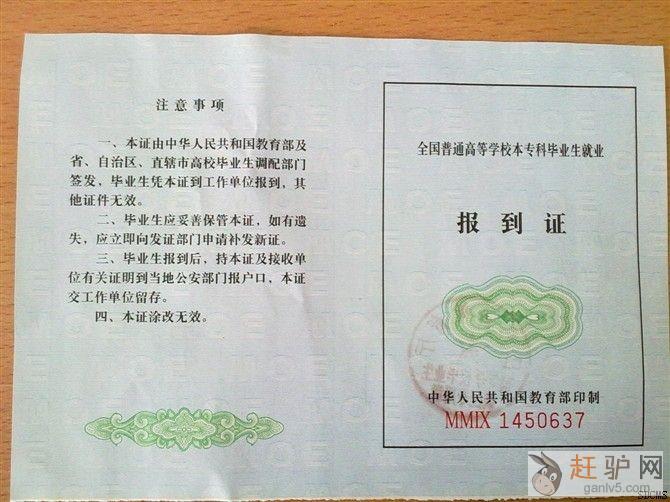 注意事项
一、本证由中华人民共和国教育部及
省、自治区、直辖市高校毕业生调配部门
签发，毕业生凭本证到工作单位报到，其
他证件无效。
二、毕业生应妥善保管本证，如有遗
失，应立即向发证部门申请补发新证。
三、毕业生报到后，持本证及接收单
位有关证明到当地公安部门报户口，本证
交工作单位留存。
四、本证涂改无效。
全国普通高等学校本专科毕业生就业
报到证
中华人民共和国教育部印制
MMIX 1450637
赶驴网
ganlv5.com